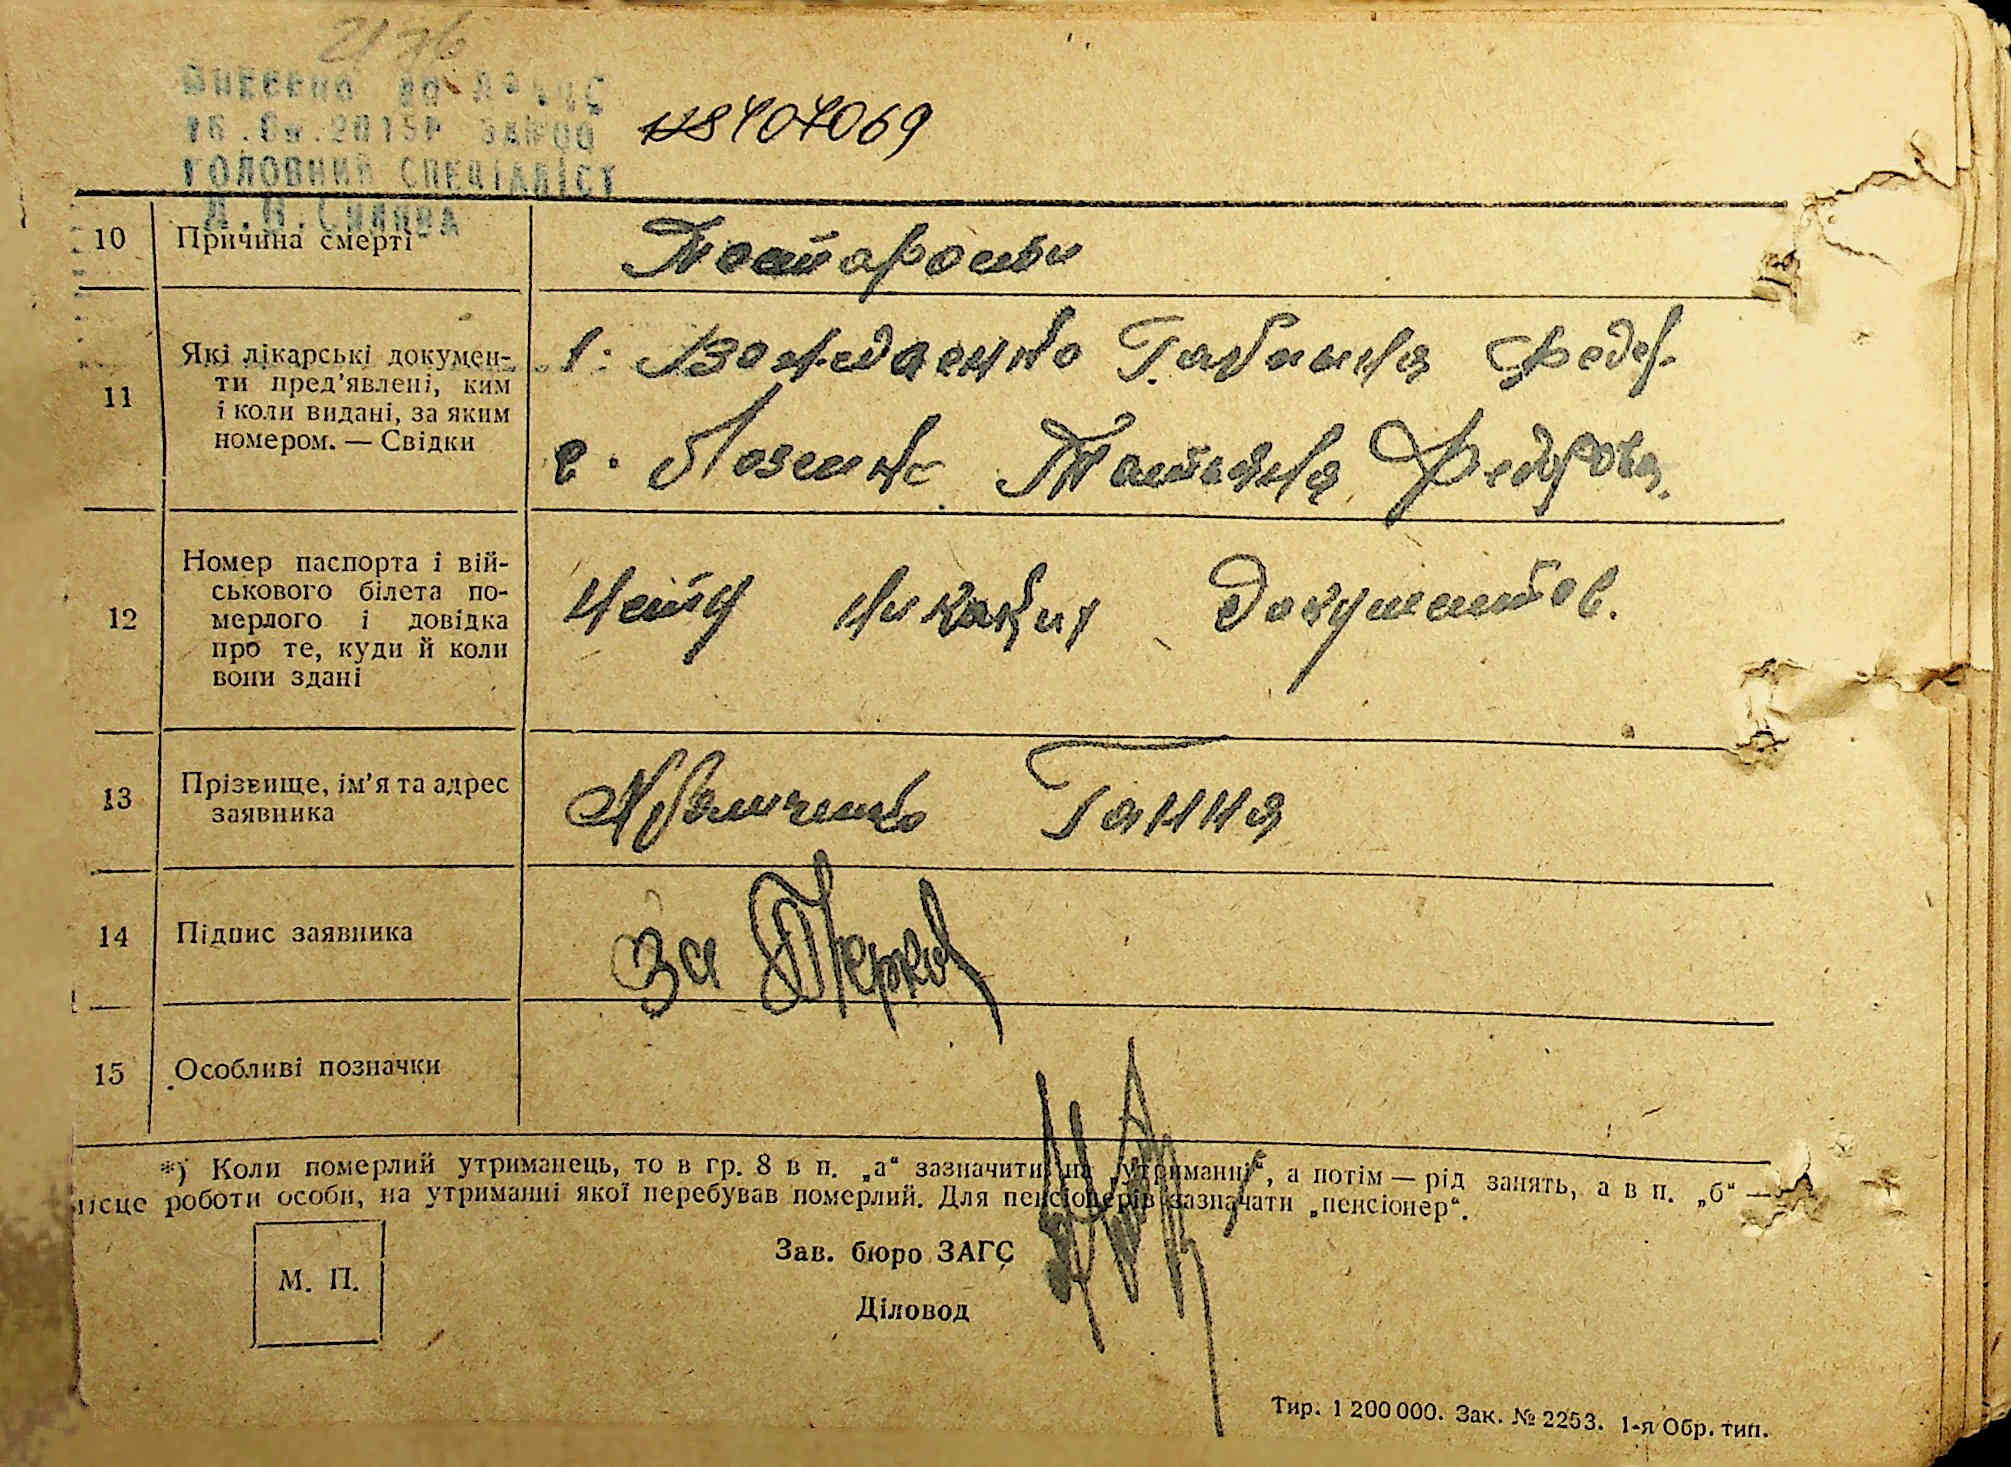 2176
Внесено до ДРАЦС
ГОЛОВНИЙ СПЕЦІАЛІСТ
407069
10 Причина смерті По старости
11 Які лікарські докумен-
ти пред’явлені, ким
і коли видані, за яким
номером. — Свідки
1. Галына Федор.
2. Татьяна Федоровн.
12 Номер паспорта і вій-
ськового білета по-
мерлого і довідка
про те, куди й коли
вони здані
Нету никаких документов.
13 Прізвище, ім’я та адрес
заявника
Гання
14 Підпис заявника За
15 Особливі позначки
*) Коли померлий утриманець, то в гр. 8 в п. „а“ зазначити „на утриманні“, а потім — рід занять, а в п. „б“ —
місце роботи особи, на утриманні якої перебував померлий. Для пенсіонерів зазначати „пенсіонер“.
М. П.
Зав. бюро ЗАГС
Діловод
Тир. 1 200 000. Зак. № 2253. 1-я Обр. тип.